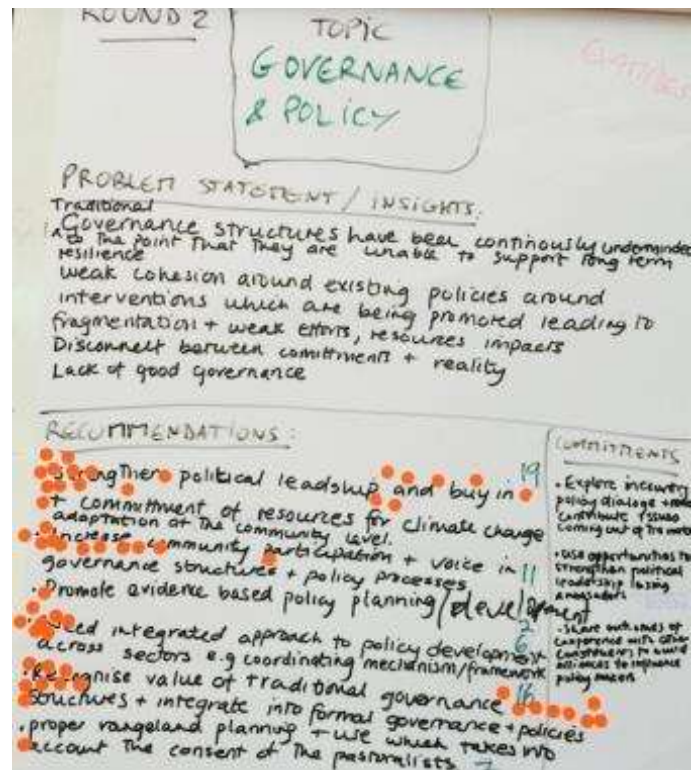 ROUND 2
TOPIC
GOVERNANCE
& POLICY
PROBLEM STATEMENT / INSIGHTS:
Traditional
Governance structures have been continously underminded
to the point that they are unable to support long term
resilience
weak cohesion around existing policies around
interventions which are being promoted leading to
fragmentation + weak efforts, resources impacts
Disconnect between comittments + reality
Lack of good governance
RECOMMENDATIONS:
Strengthen political leadship and buy in 19
+ commitment of resources for climate change
adaptation at the community level.
· Increase community participation + voice in
governance structures + policy processes 11
· Promote evidence based policy planning/development
2
Need integrated approach to policy development 6
across sectors e.g coordinating mechanism/framework
· Recognise value of traditional governance 16
structures + integrate into formal governance + policies
· proper rangeland planning + use which takes into
account the consent of the pastoralists 7
COMMITMENTS
· Explore incountry
policy dialoge +
contribute issues
coming out of the
· use opportunities to
strengthen political
leadership
· Share outcomes of
conference with other
to build
alliances to influence
policy makers